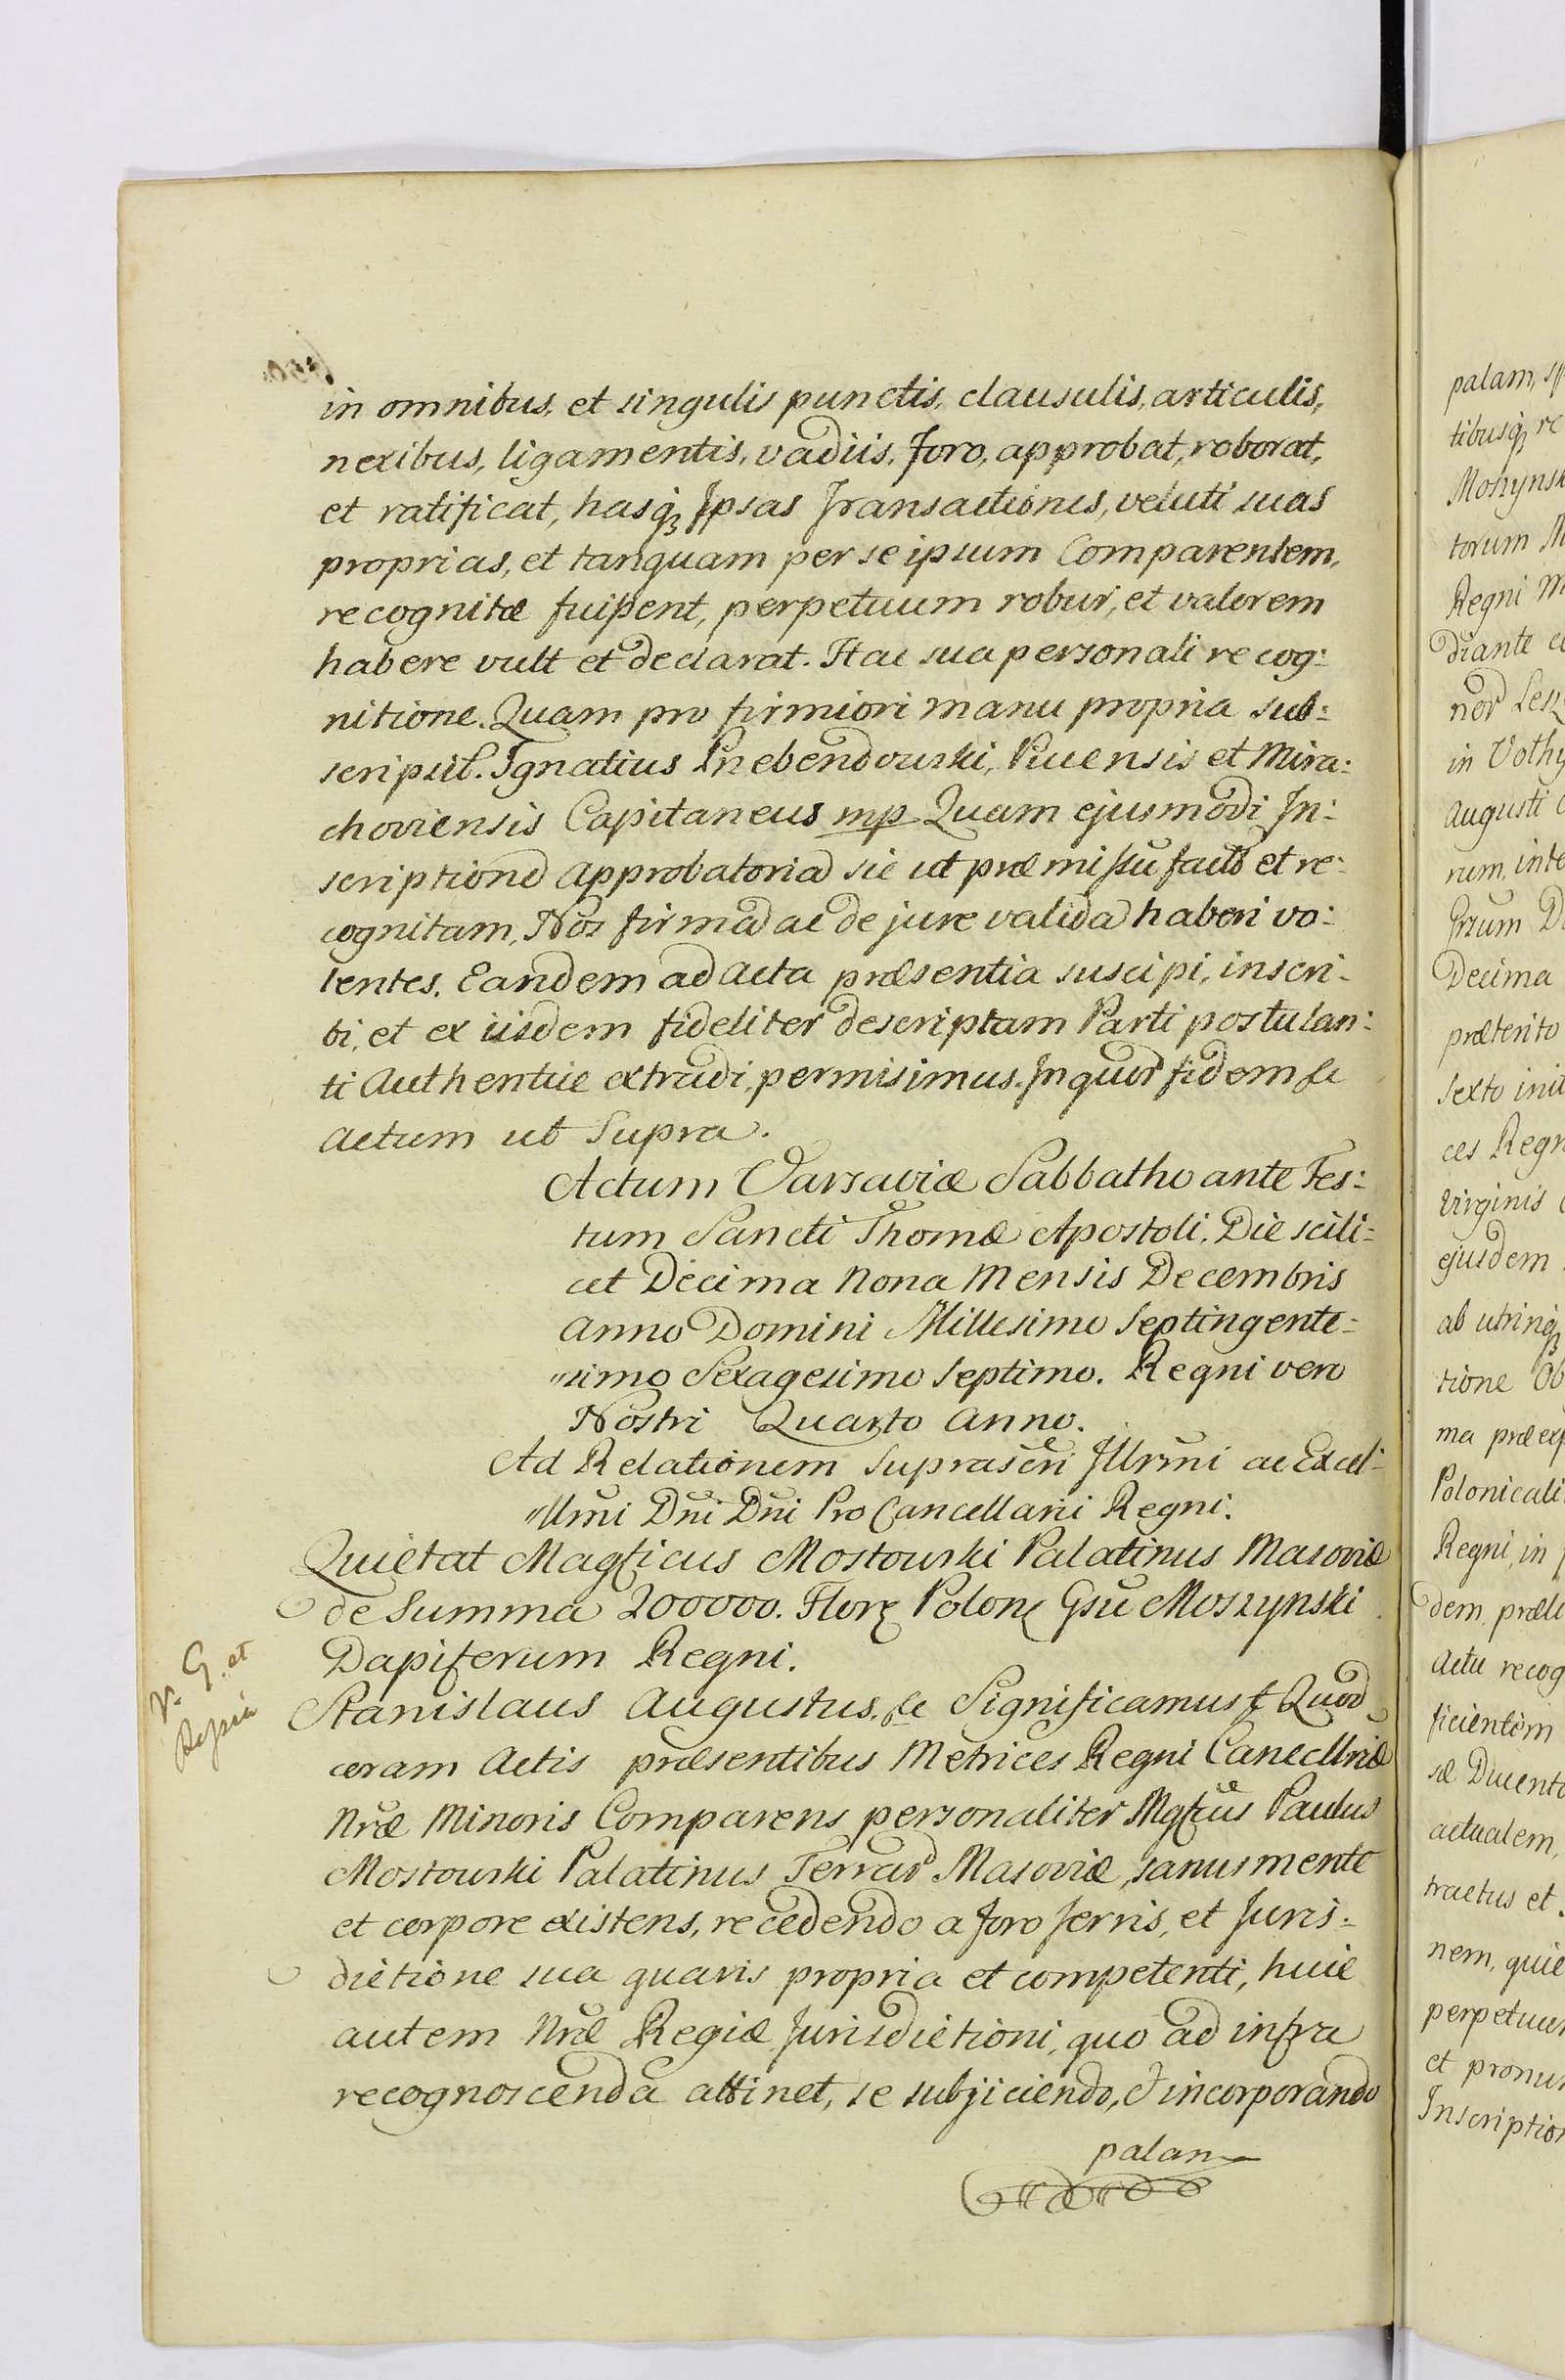 in omnibus, et singulis punctis, clausulis, articulis,
nexibus, ligamentis, vadiis, Foro, approbat, roborat,
et ratificat, hasq₃ Ipsas Transactiones, veluti suas
proprias, et tanquam per se ipsum Comparentem,
recognitæ fuißent, perpetuum robur, et valorem
habere vult et declarat. Hac sua personali recog:
nitione. Quam pro firmiori manu propria sub:
scripsit. Ignatius Przebendowski, Pucensis et Mira:
choviensis Capitaneus mp Quam ejusmodi In:
scriptione Approbatoria sic ut præmißu facta et re:
cognitam, Nos firma ac de jure valida haberi vo:
lentes, Eandem ad Acta præsentia suscipi, inscri-
bi, et ex iisdem fideliter descriptam Parti postulan:
ti Authentice extradi permisimus. In quor fidem &c
Actum ut Supra.
Actum Varsaviæ Sabbatho ante Fes:
tum Sancti Thomæ Apostoli. Die scili:
cet Decima Nona Mensis Decembris
Anno Domini Millesimo Septingente:
simo Sexagesimo Septimo. Regni vero
Nostri Quarto Anno.
Ad Relationem suprascri Illrmi ac Excel:
llmi Dni Dni Pro Cancellarii Regni.
Quietat Magticus Mostowski Palatinus Masoviæ
de Summa 200000. Flor Polon Gsu Moszynski
Dapiferum Regni.
V. G. et
Stanislaus Augustus, &c Significamus &c Quod
coram Actis præsentibus Metrices Regni Cancellriæ
Nræ Minoris Comparens personaliter Mgtcus Paulus
Mostowski Palatinus Terrar Masoviæ, sanus mente
et corpore existens, recedendo a Foro Terris, et Juris:
dictione sua quavis propria et competenti, huic
autem Nræ Regiæ Jurisdictioni, quo ad infra
recognoscenda attinet, se subjiciendo, & incorporando
palam
palam, sp
tibusq₃ re
Moszynsk
torum M
Regni M
diante
nor Lesz
in Vothy
Augusti
rum, inte
Decima
præterito
Sexto init
ces Regn
Virginis
ejusdem
ab utrinq₃
tione Ob
ma præexp
Polonicali
Regni, in
dem, præli
Actu recog
ficientem
sæ Ducento
actualem,
tractus et
nem, quie
perpetuu
et pronun
Inscription